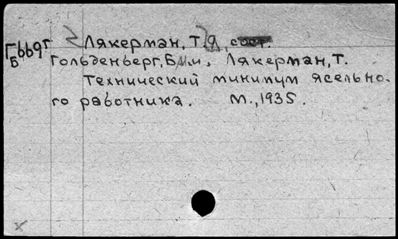 Лякерман, Т. Я.,
Г669г
Б
Гольденберг, Б. и. Лякерман, Т.
Технический минимум ясельно-
го работника. М., 1935.